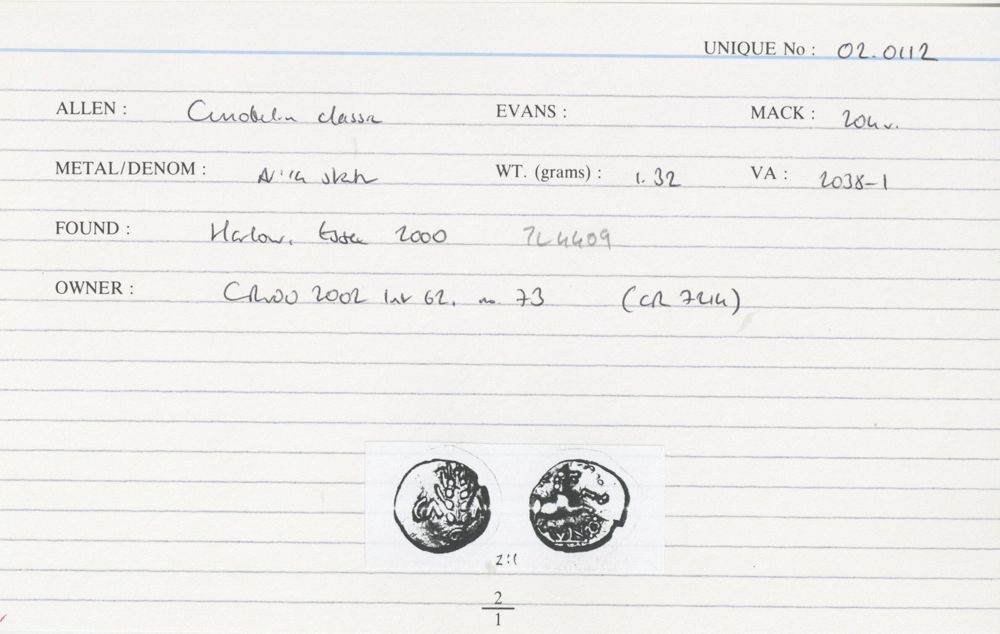 UNIQUE No : 02.0112
ALLEN : Cunobelin classic EVANS : MACK : 204 v.
METAL/DENOM : WT. (grams) : 1.32 VA : 2038-1
FOUND : Harlow, Essex 2000 TL 4409
OWNER : 2002 62, no 73 (CR 7214)
2:1
2
1